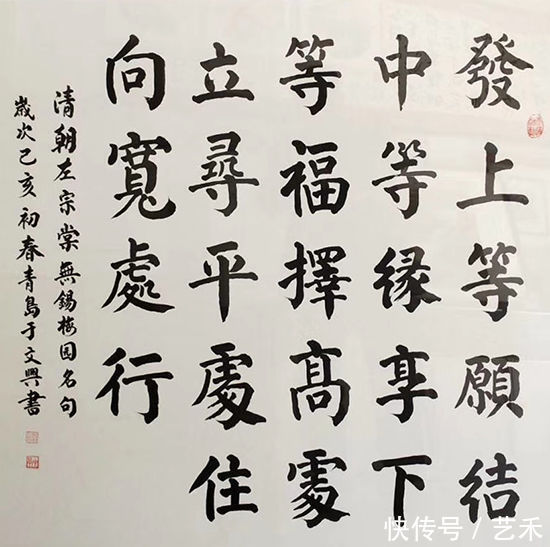 發上等願結
中等緣享下
等福擇高處
立尋平處住
向寬處行
清朝左宗棠無錫梅园名句
歲次己亥初春青島于文興書
快传号 / 艺禾